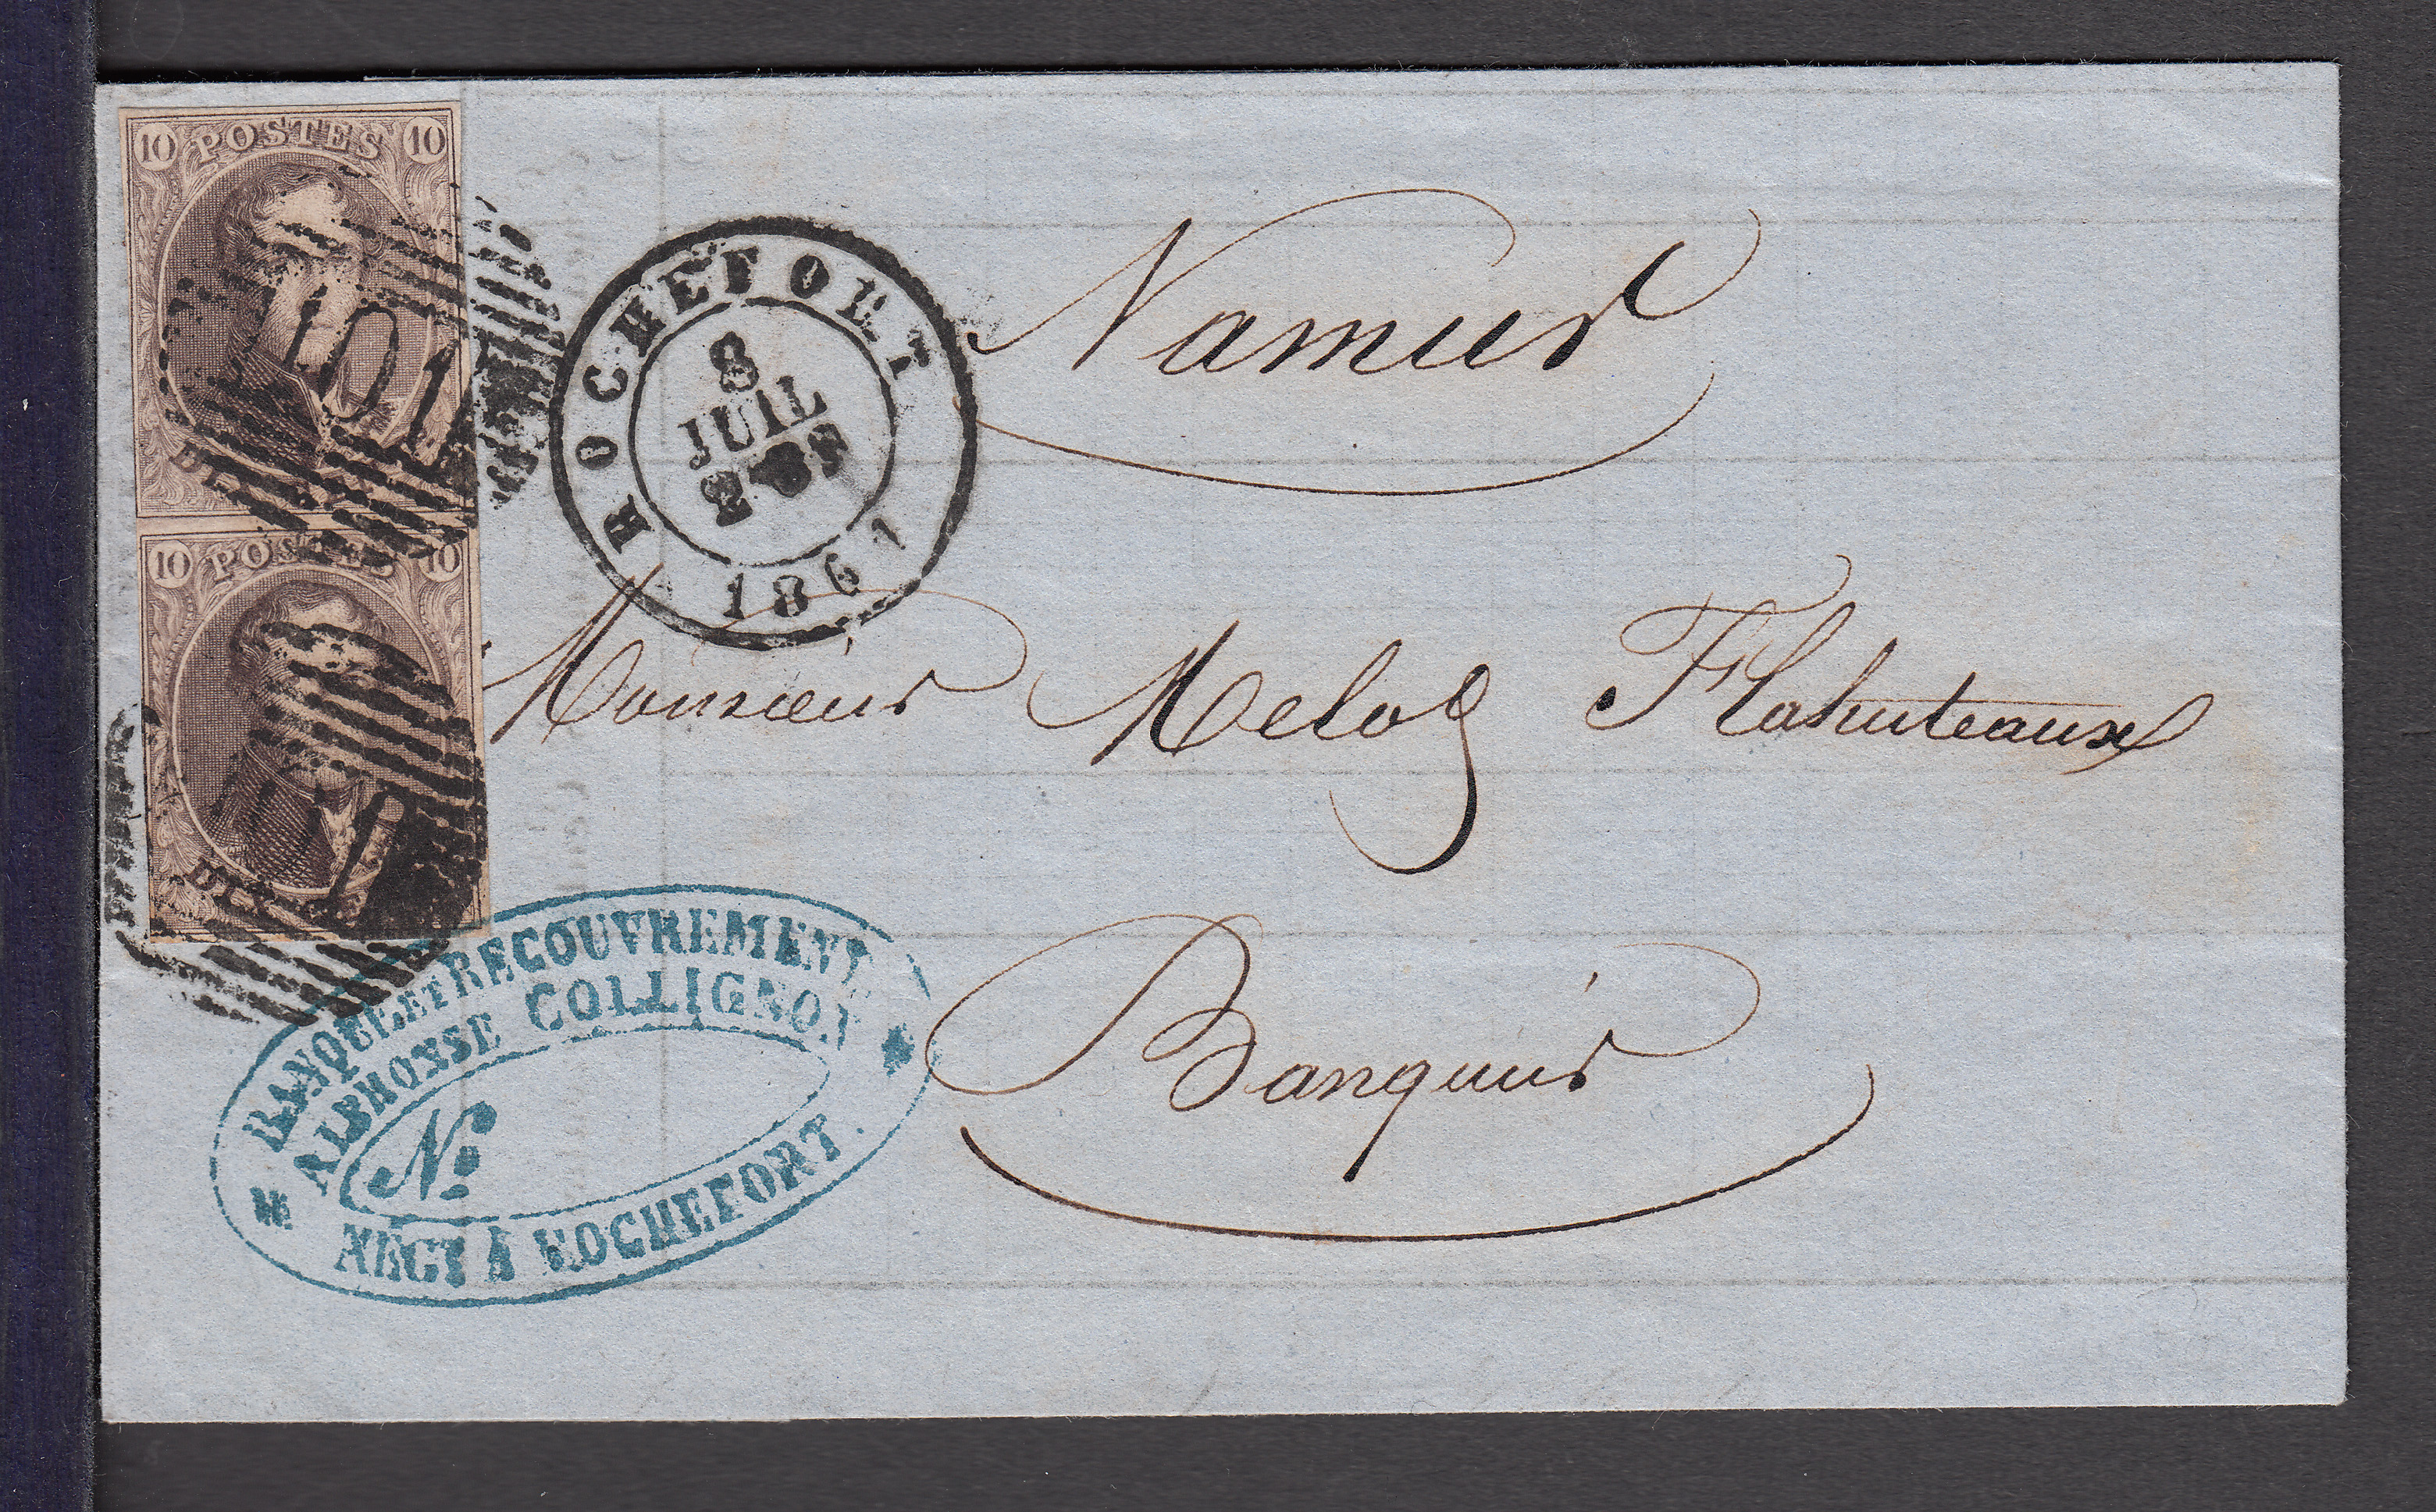 10 POSTES 10
101
10 POSTES 10
ROCHEFORT
8
JUIL
1861
Namur
Monsieur Melot Flahuteaux
Banquier
BANQUE ET RECOUVREMENT
ALPHONSE COLLIGNON
No
NEGT À ROCHEFORT.